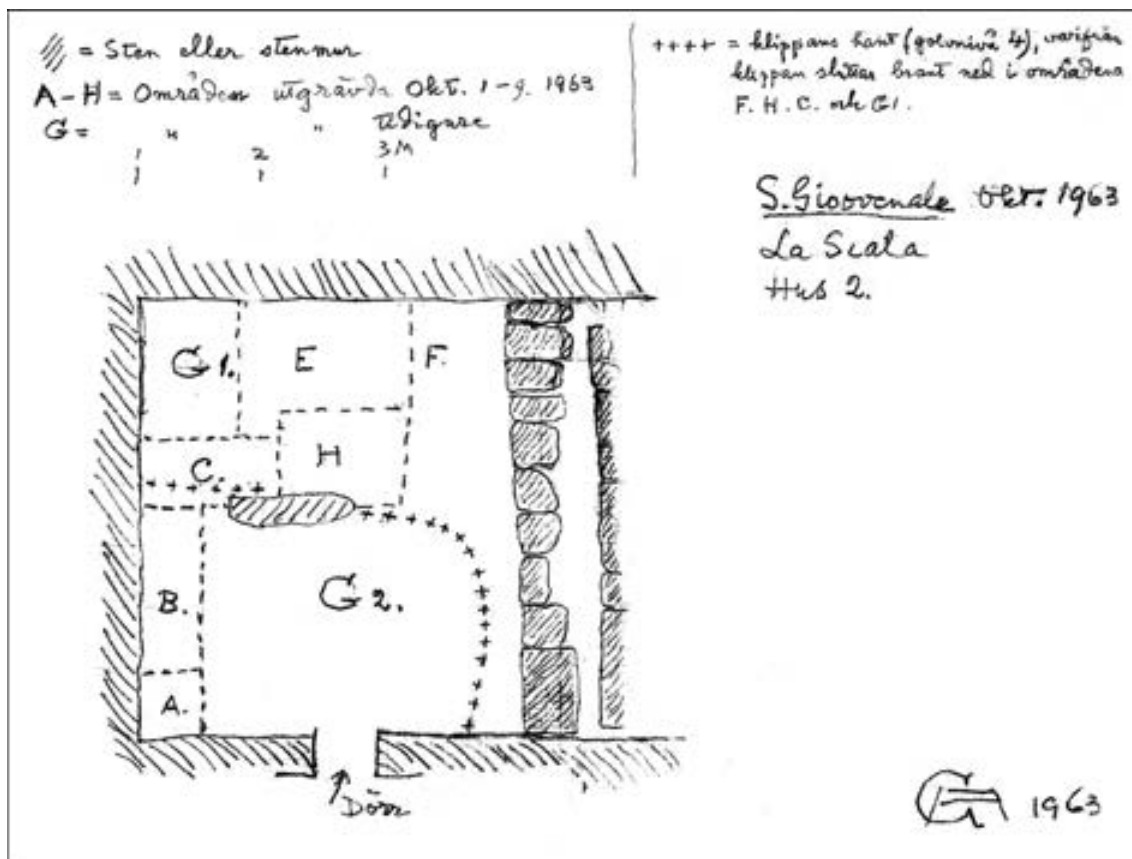 = Sten eller stenmur
A-H = Områden utgrävda Okt. 1-9. 1963
G = " " tidigare
1 2 3 M
++++ = klippans kant (golvnivå 4), varifrån
klippan sluttar brant ned i områdena
F. H. C. och G1.
S. Giovenale Okt. 1963
La Scala
Hus 2.
G1. E F.
C. H
B. G2.
A.
Dörr
1963